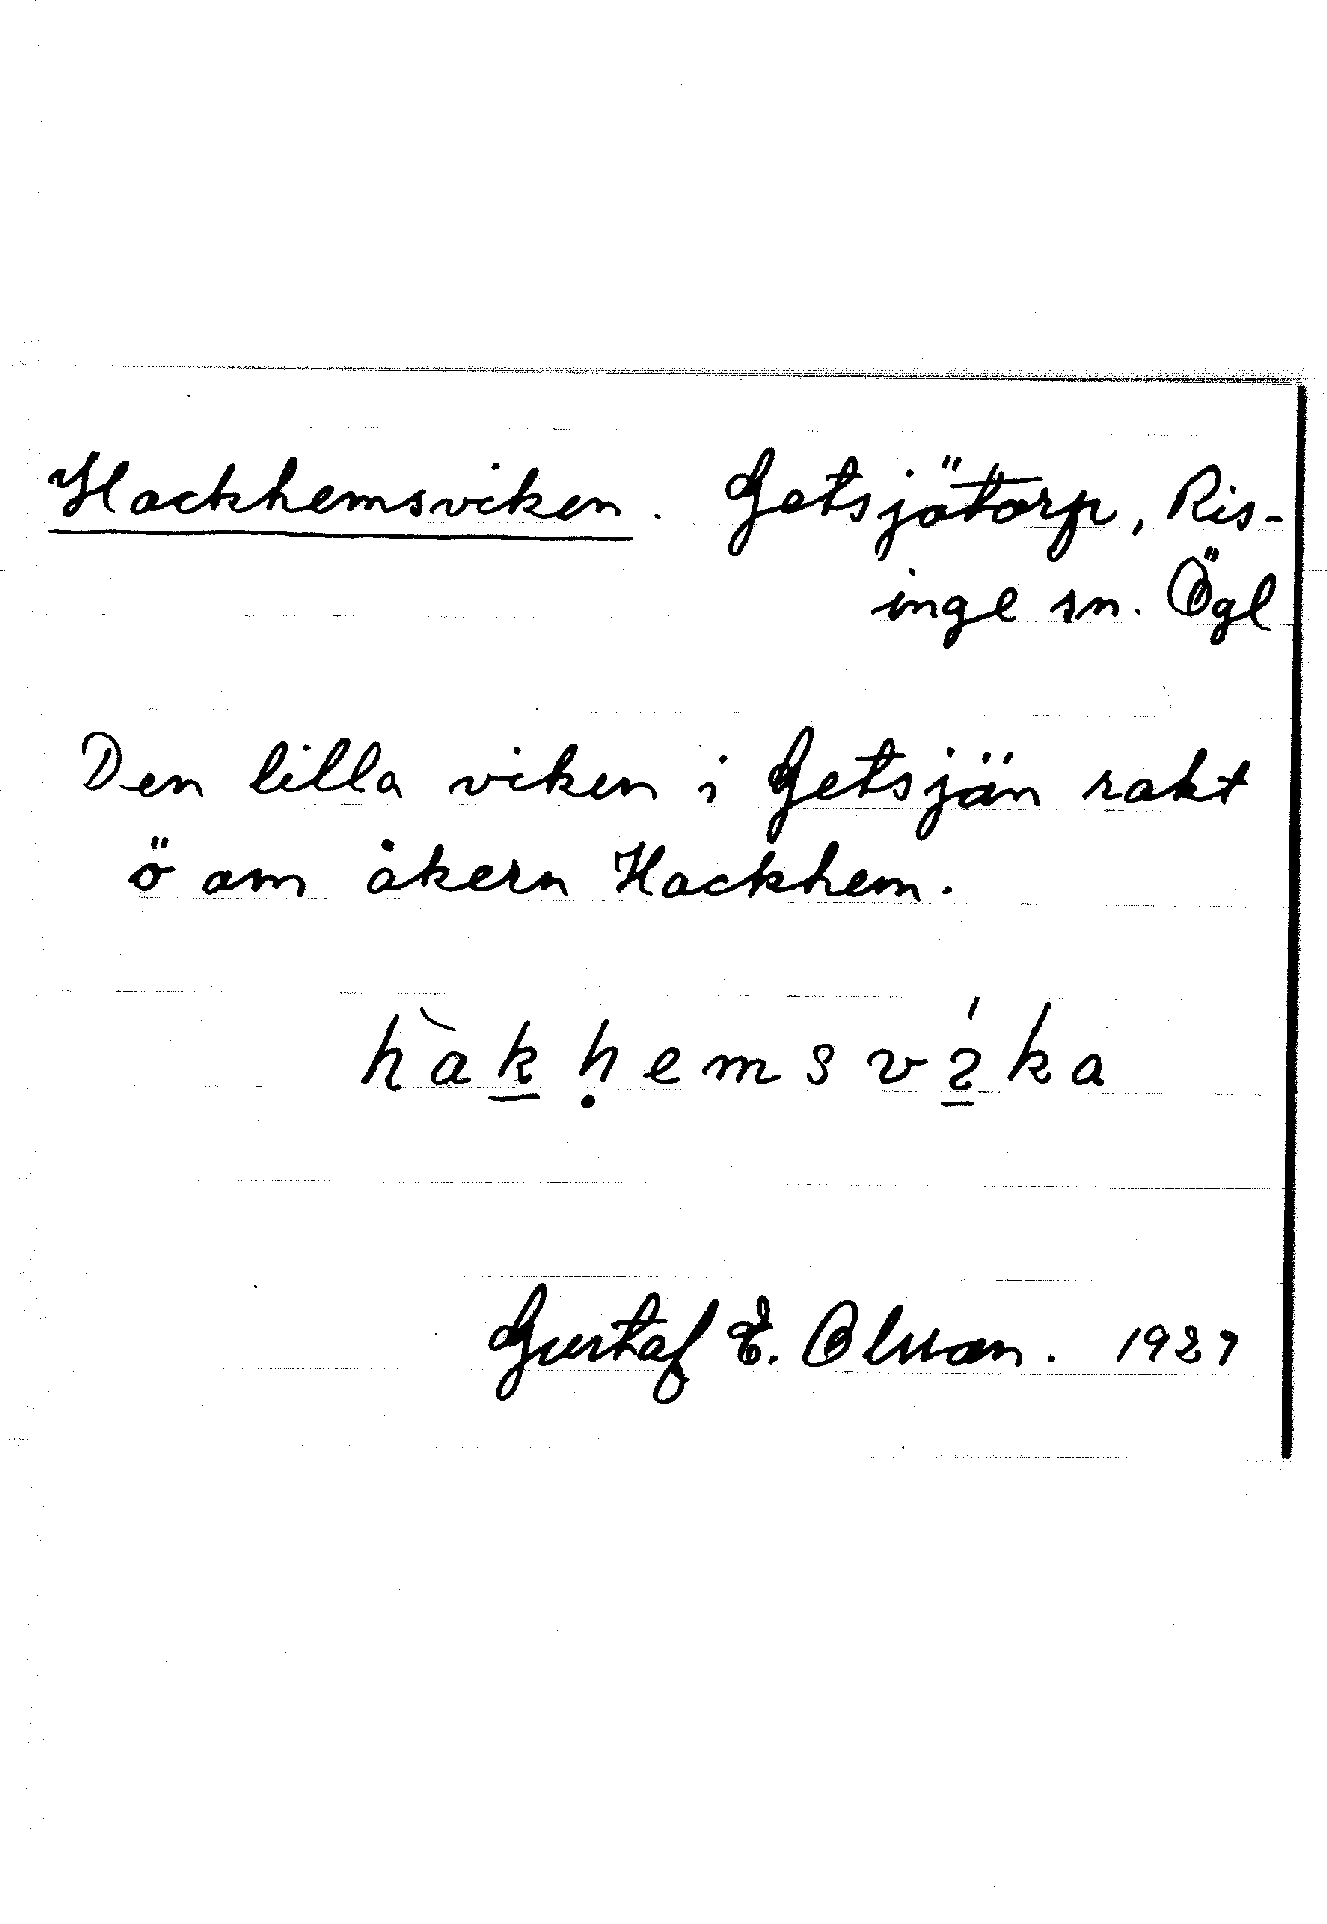 Hackhemsviken. Getsjötorp, Ris-
inge sn. Ögl
Den lilla viken i Getsjön rakt
ö om åkern Hackhem.
hàk̲ḥemsvı̲́ka
Gustaf E. Olsson. 1927